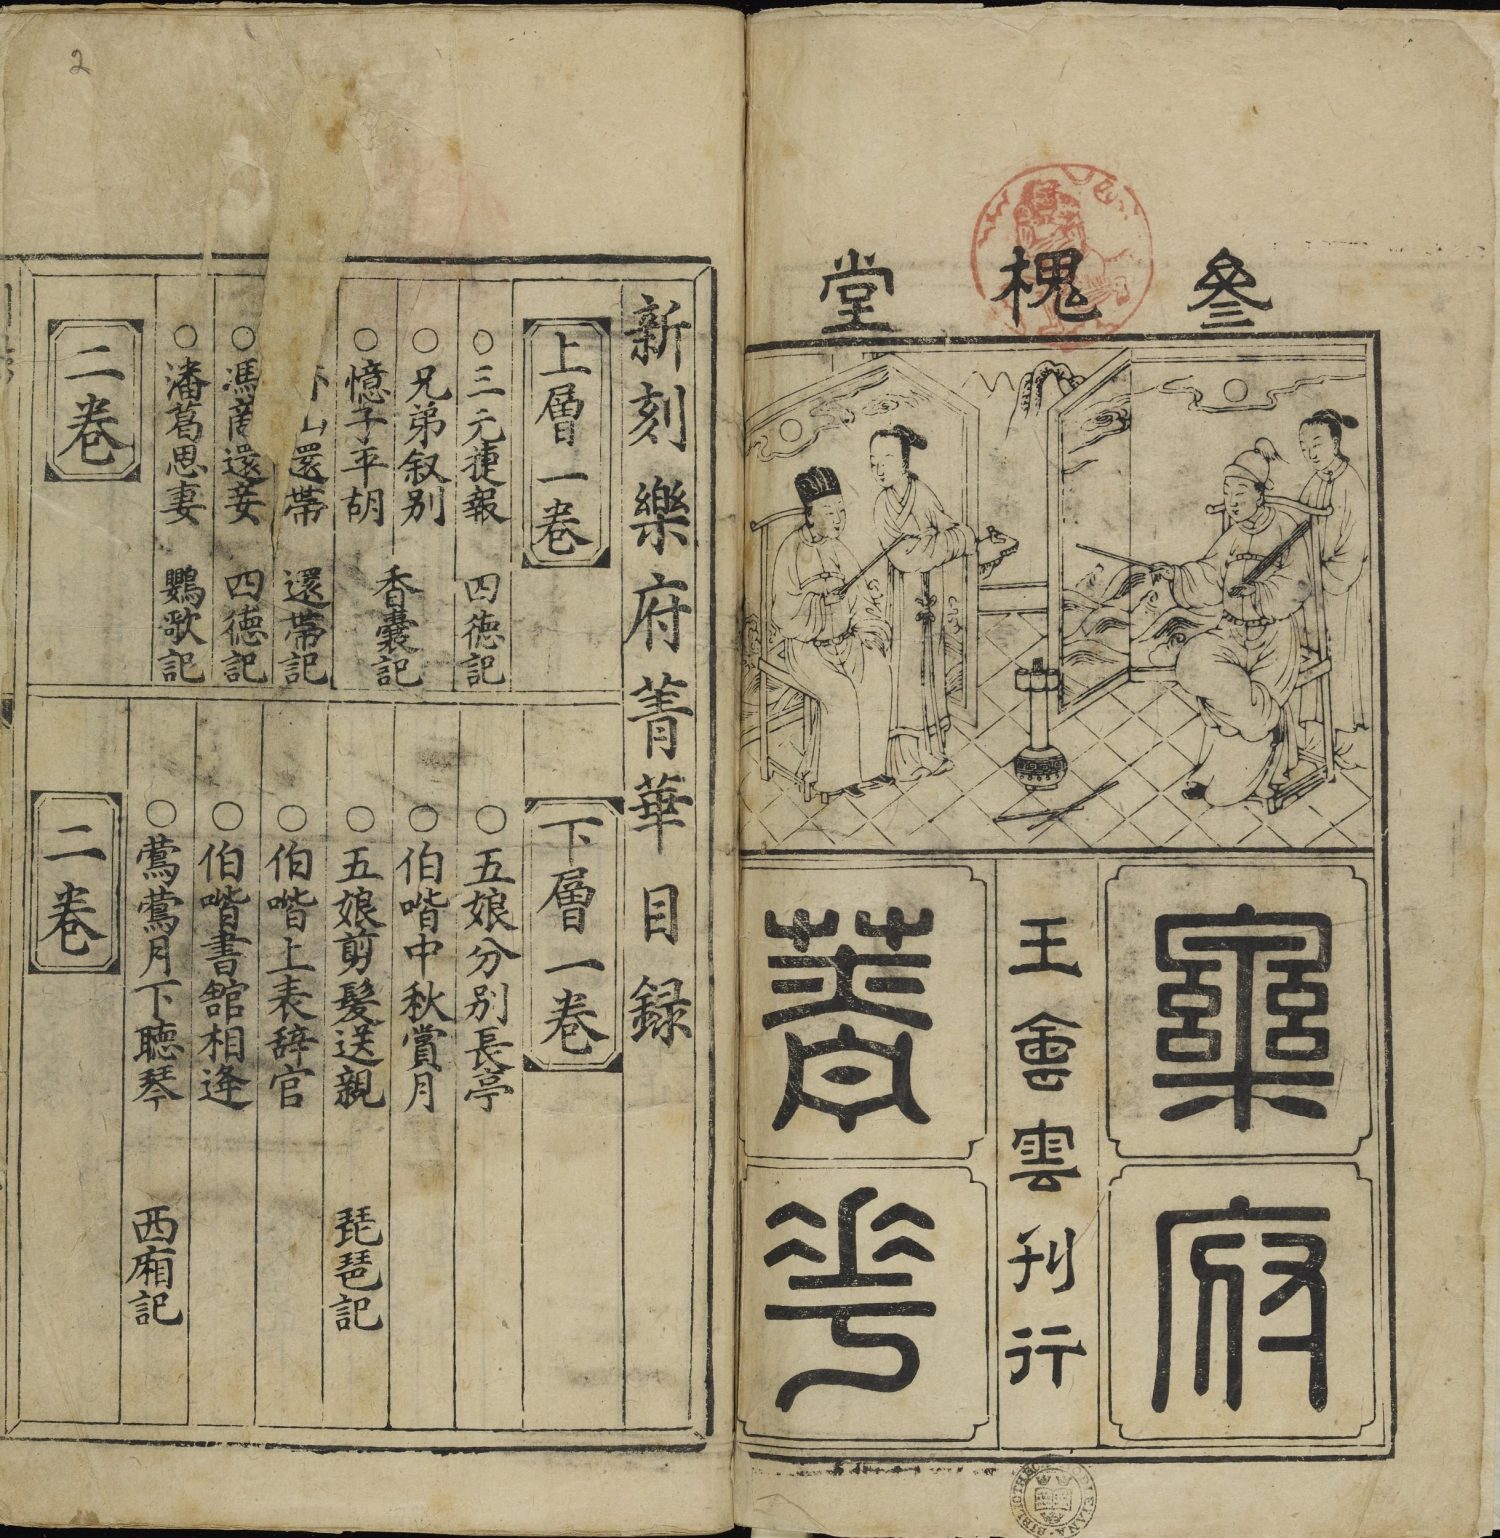 叄槐堂
樂府
王會雲刊行
菁華
BIBLIOTHECA BODLEIANA
2
新刻樂府菁華目録
上層一卷
○三元捷報 四徳記
○兄弟叙别
○憶子平胡 香囊記
還帶 還帶記
○馮商還妾 四徳記
○潘葛思妻 鸚歌記
二卷
下層一卷
○五娘分别長亭
○伯喈中秋賞月
○五娘剪髮送親 琵琶記
○伯喈上表辞官
○伯喈書舘相逢
○鶯鶯月下聽琴 西廂記
二卷